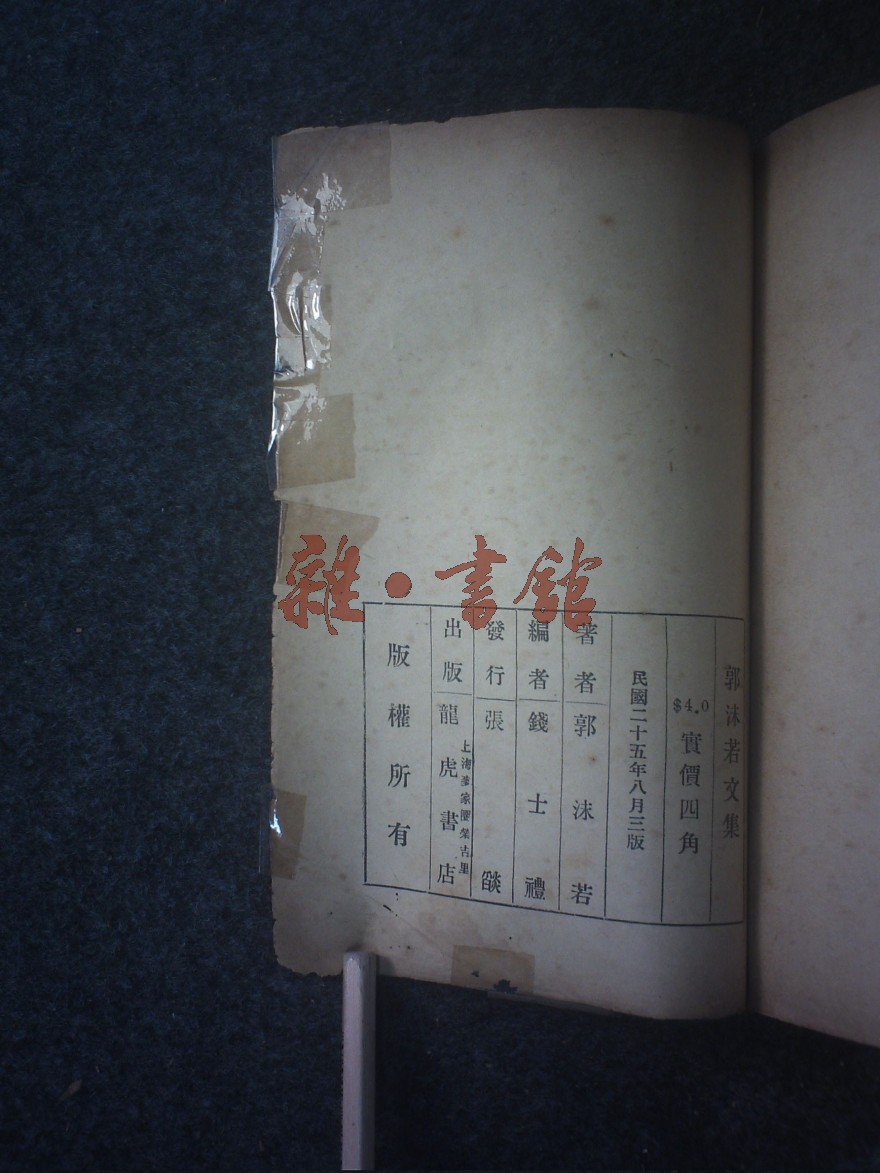 雜·書館
郭沫若文集
$4.0 實價四角
民國二十五年八月三版
著者 郭沫若
編者 錢士禮
發行 張燄
出版 龍虎書店
上海麥家圈榮吉里
版權所有